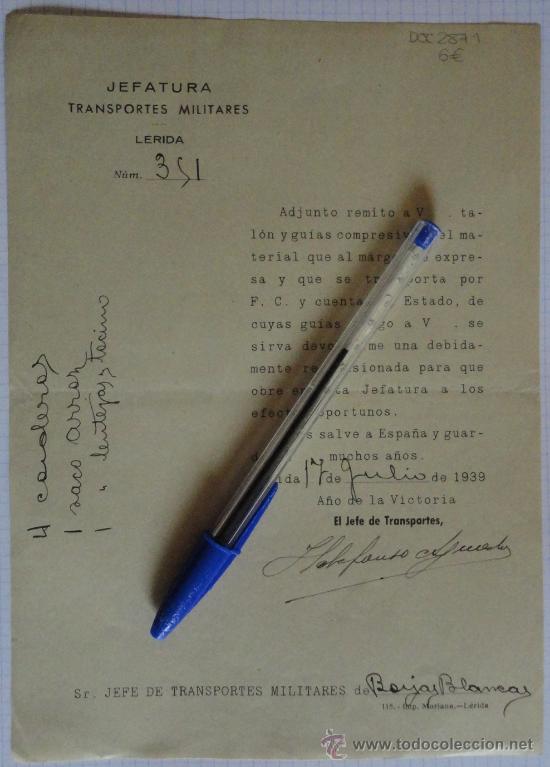 DOC 2871
6€
JEFATURA
TRANSPORTES MILITARES
LERIDA
Núm. 351
Adjunto remito a V . ta-
lón y guías compresiv el ma-
terial que al marg e expre-
sa y que se tra porta por
F. C. y cuenta Estado, de
cuyas guías go a V . se
sirva devo me una debida-
me isionada para que
obre en ta Jefatura a los
efect oportunos.
s salve a España y guar-
d muchos años.
ida 17 de Julio de 1939
Año de la Victoria
El Jefe de Transportes,
Ildefonso
4 corderos
1 saco arroz
1 " lentejas y tocino
Sr. JEFE DE TRANSPORTES MILITARES de Borjas Blancas
115.-Imp. Mariana.—Lérida
www.todocoleccion.net